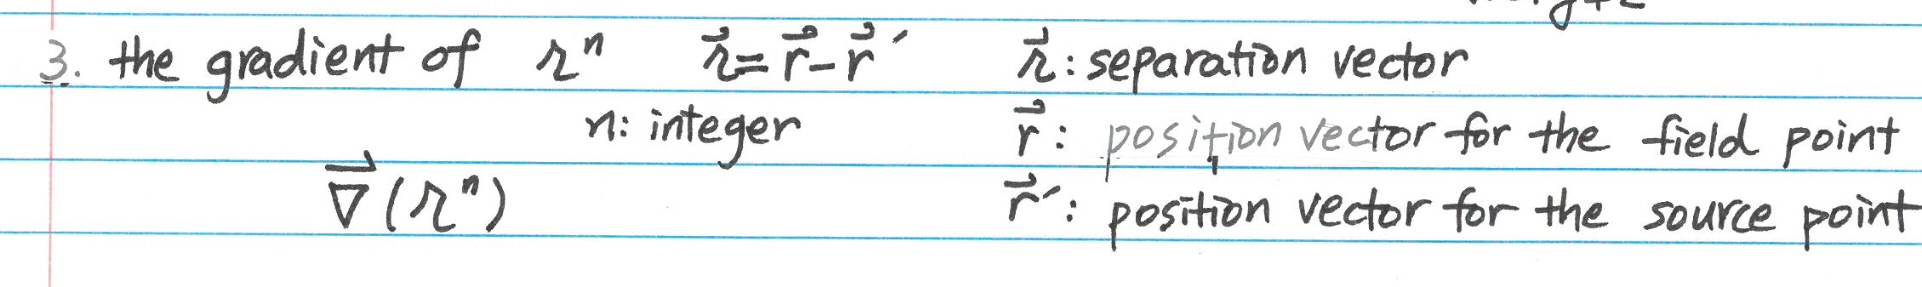 3. the gradient of 𝓇ⁿ 𝓇⃗ = r⃗ - r⃗′ 𝓇⃗: separation vector
n: integer r⃗: position vector for the field point
∇⃗(𝓇ⁿ) r⃗′: position vector for the source point